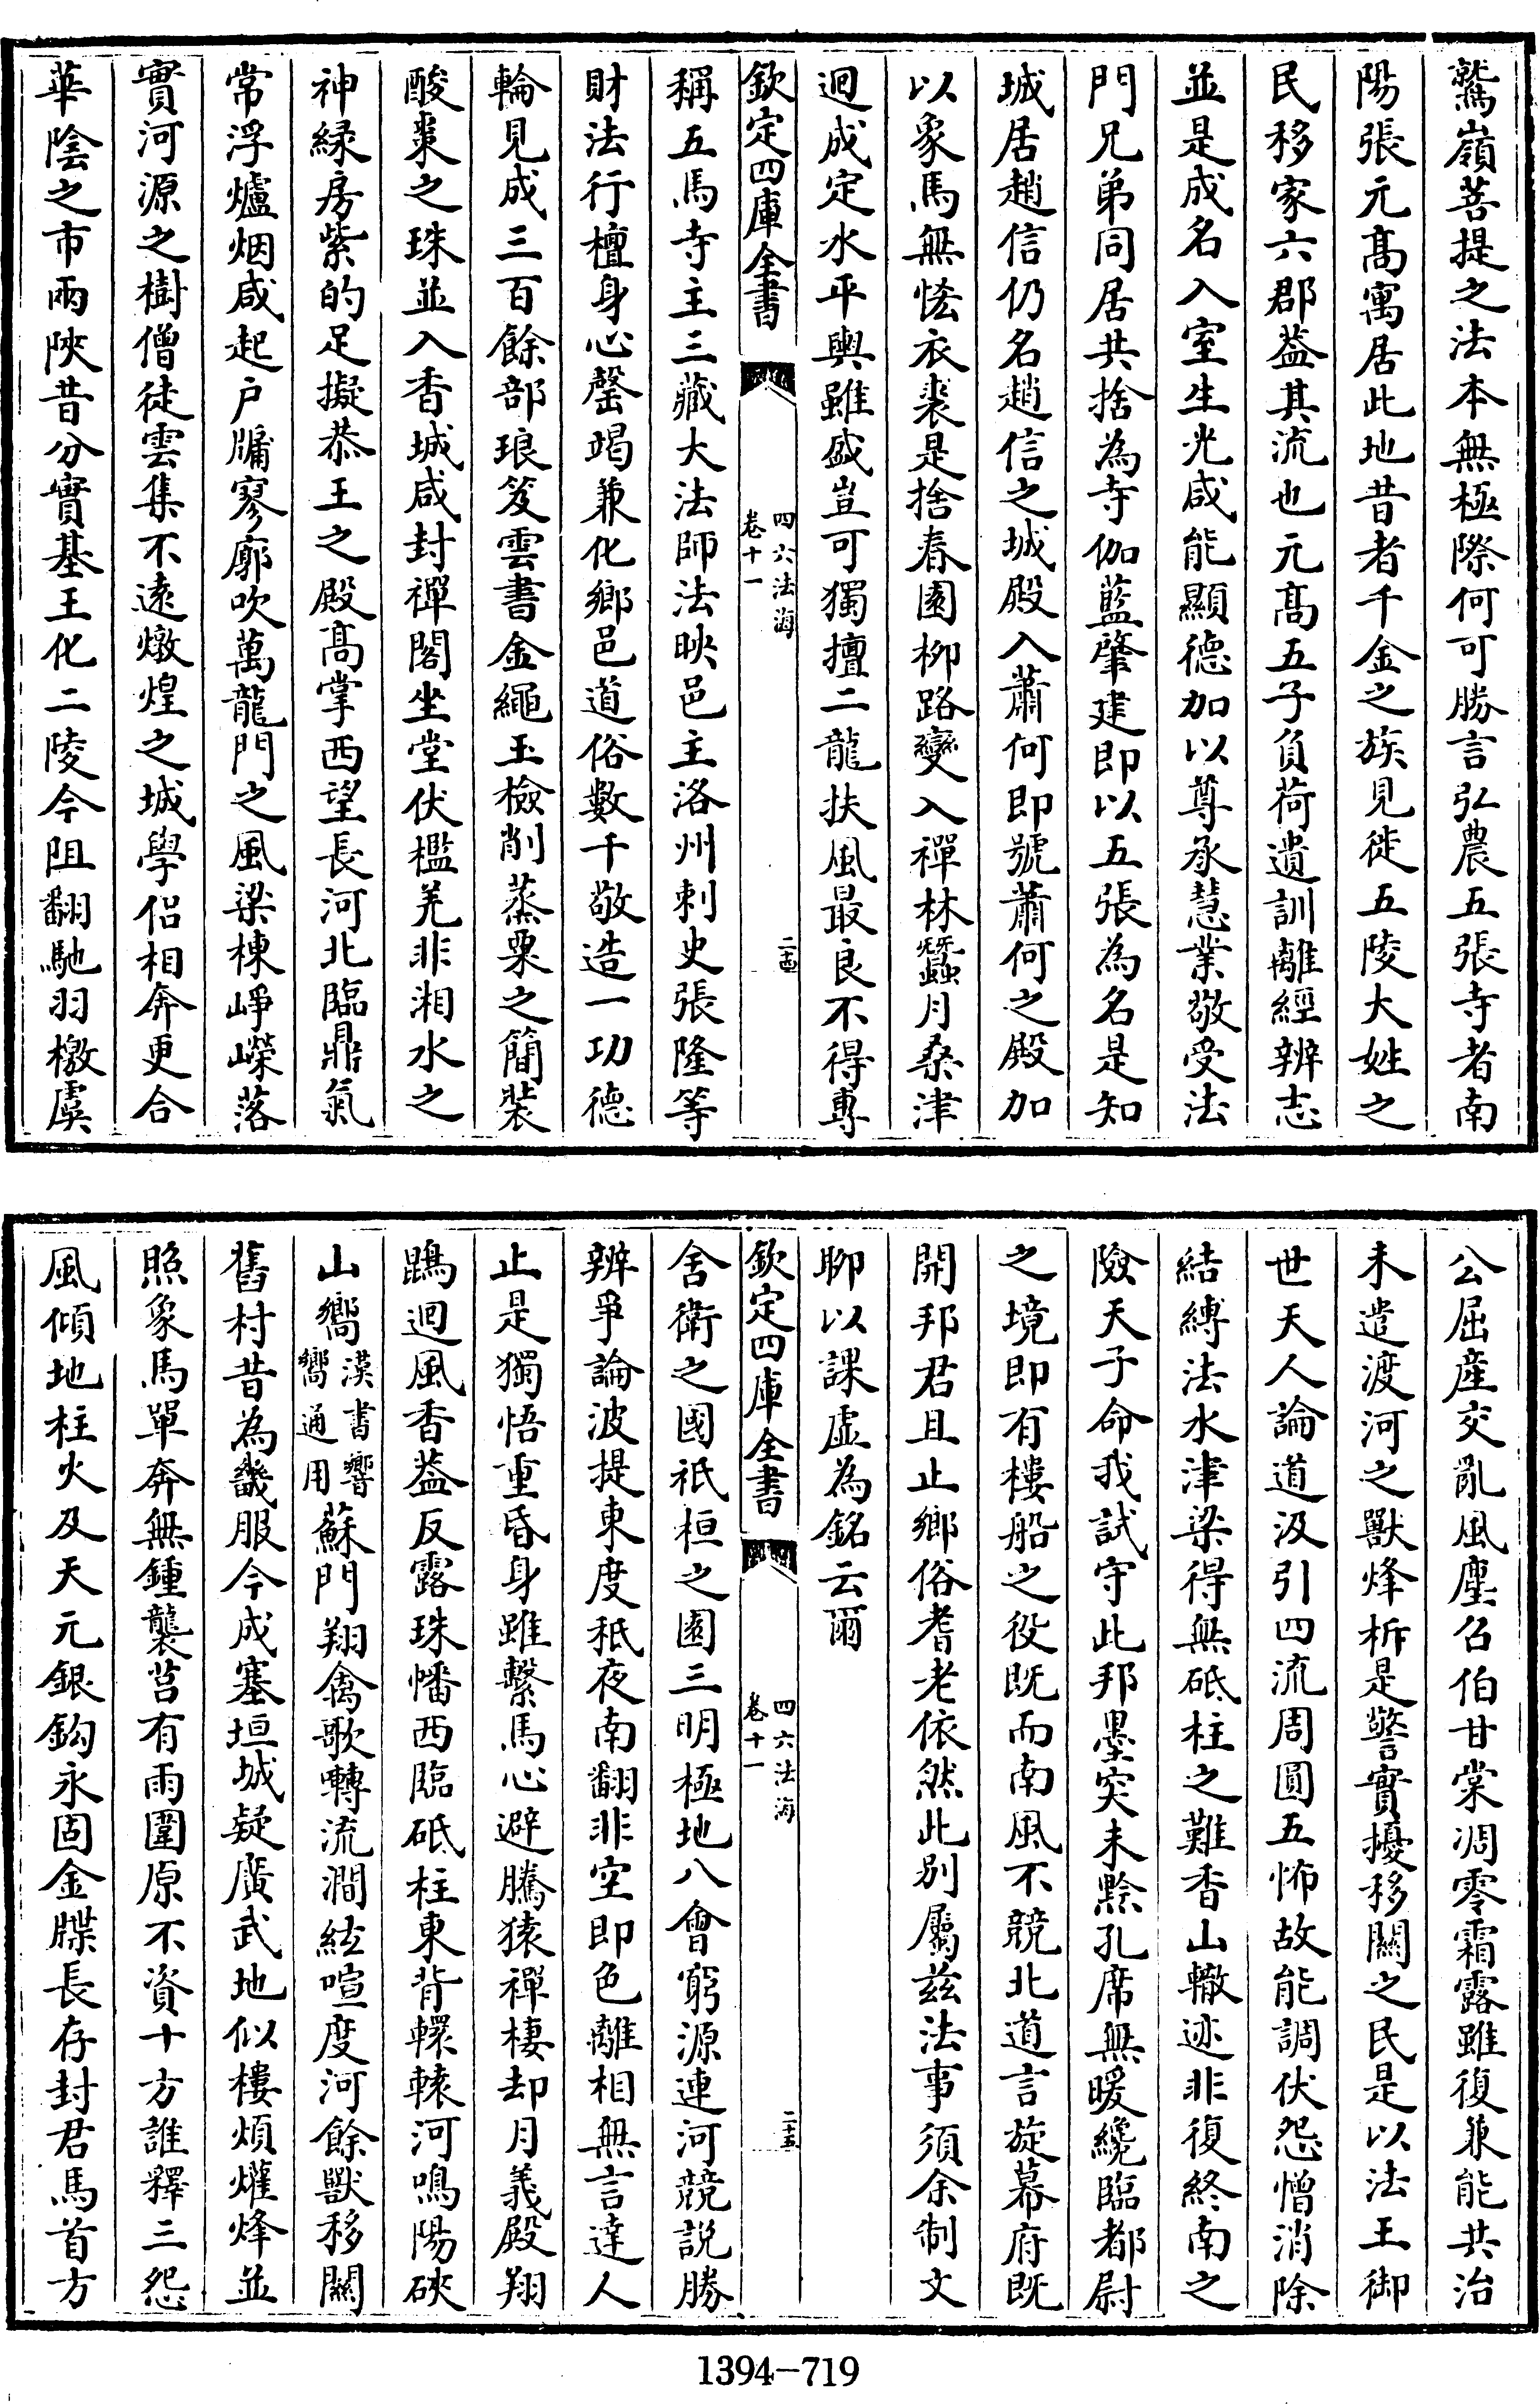 鷲嶺菩提之法本無極際何可勝言弘農五張寺者南
陽張元髙寓居此地昔者千金之族見徙五陵大姓之
民移家六郡葢其流也元髙五子負荷遺訓離經辨志
並是成名入室生光咸能顯德加以尊承慧業敬受法
門兄弟同居共捨為寺伽藍肇建即以五張為名是知
城居趙信仍名趙信之城殿入蕭何即號蕭何之殿加
以象馬無恡衣裘是捨春園栁路變入禪林蠶月桑津
迴成定水平輿雖盛豈可獨擅二龍扶風最良不得專
欽定四庫全書
四六法海
卷十一
二十四
稱五馬寺主三藏大法師法映邑主洛州刺史張隆等
財法行檀身心罄竭兼化鄉邑道俗數千敬造一功德
輪見成三百餘部琅笈雲書金繩玉檢削蒸栗之簡裝
酸棗之珠並入香城咸封禪閣坐堂伏檻羌非湘水之
神緑房紫的足擬恭王之殿髙掌西望長河北臨鼎氣
常浮爐烟咸起户牖寥廓吹萬龍門之風梁棟崢嶸落
實河源之樹僧徒雲集不遠燉煌之城學侣相奔更合
華陰之市兩陝昔分實基王化二陵今阻翻馳羽檄虞
公屈産交亂風塵召伯甘棠凋零霜露雖復兼能共治
未遣渡河之獸烽柝是警實擾移關之民是以法王御
世天人論道汲引四流周圓五怖故能調伏怨憎消除
結縛法水津梁得無砥柱之難香山轍迹非復終南之
險天子命我試守此邦墨突未黔孔席無暖纔臨都尉
之境即有樓船之役既而南風不競北道言旋幕府既
開邦君且止鄉俗耆老依然此别屬兹法事須余制文
聊以課虚為銘云爾
欽定四庫全書
四六法海
卷十一
二十五
舍衛之國祇桓之園三明極地八會窮源連河競説勝
辨爭論波提東度秖夜南翻非空即色離相無言達人
止是獨悟重昏身雖繫馬心避騰猿禪棲却月義殿翔
鵾迴風香葢反露珠幡西臨砥柱東背轘轅河鳴陽硤
山嚮
漢書響
嚮通用
蘇門翔禽歌囀流澗絃喧度河餘獸移關
舊村昔為畿服今成塞垣城疑廣武地似樓煩爟烽並
照象馬單奔無鍾襲莒有雨圍原不資十方誰釋三怨
風傾地柱火及天元銀鈎永固金牒長存封君馬首方
1394-719